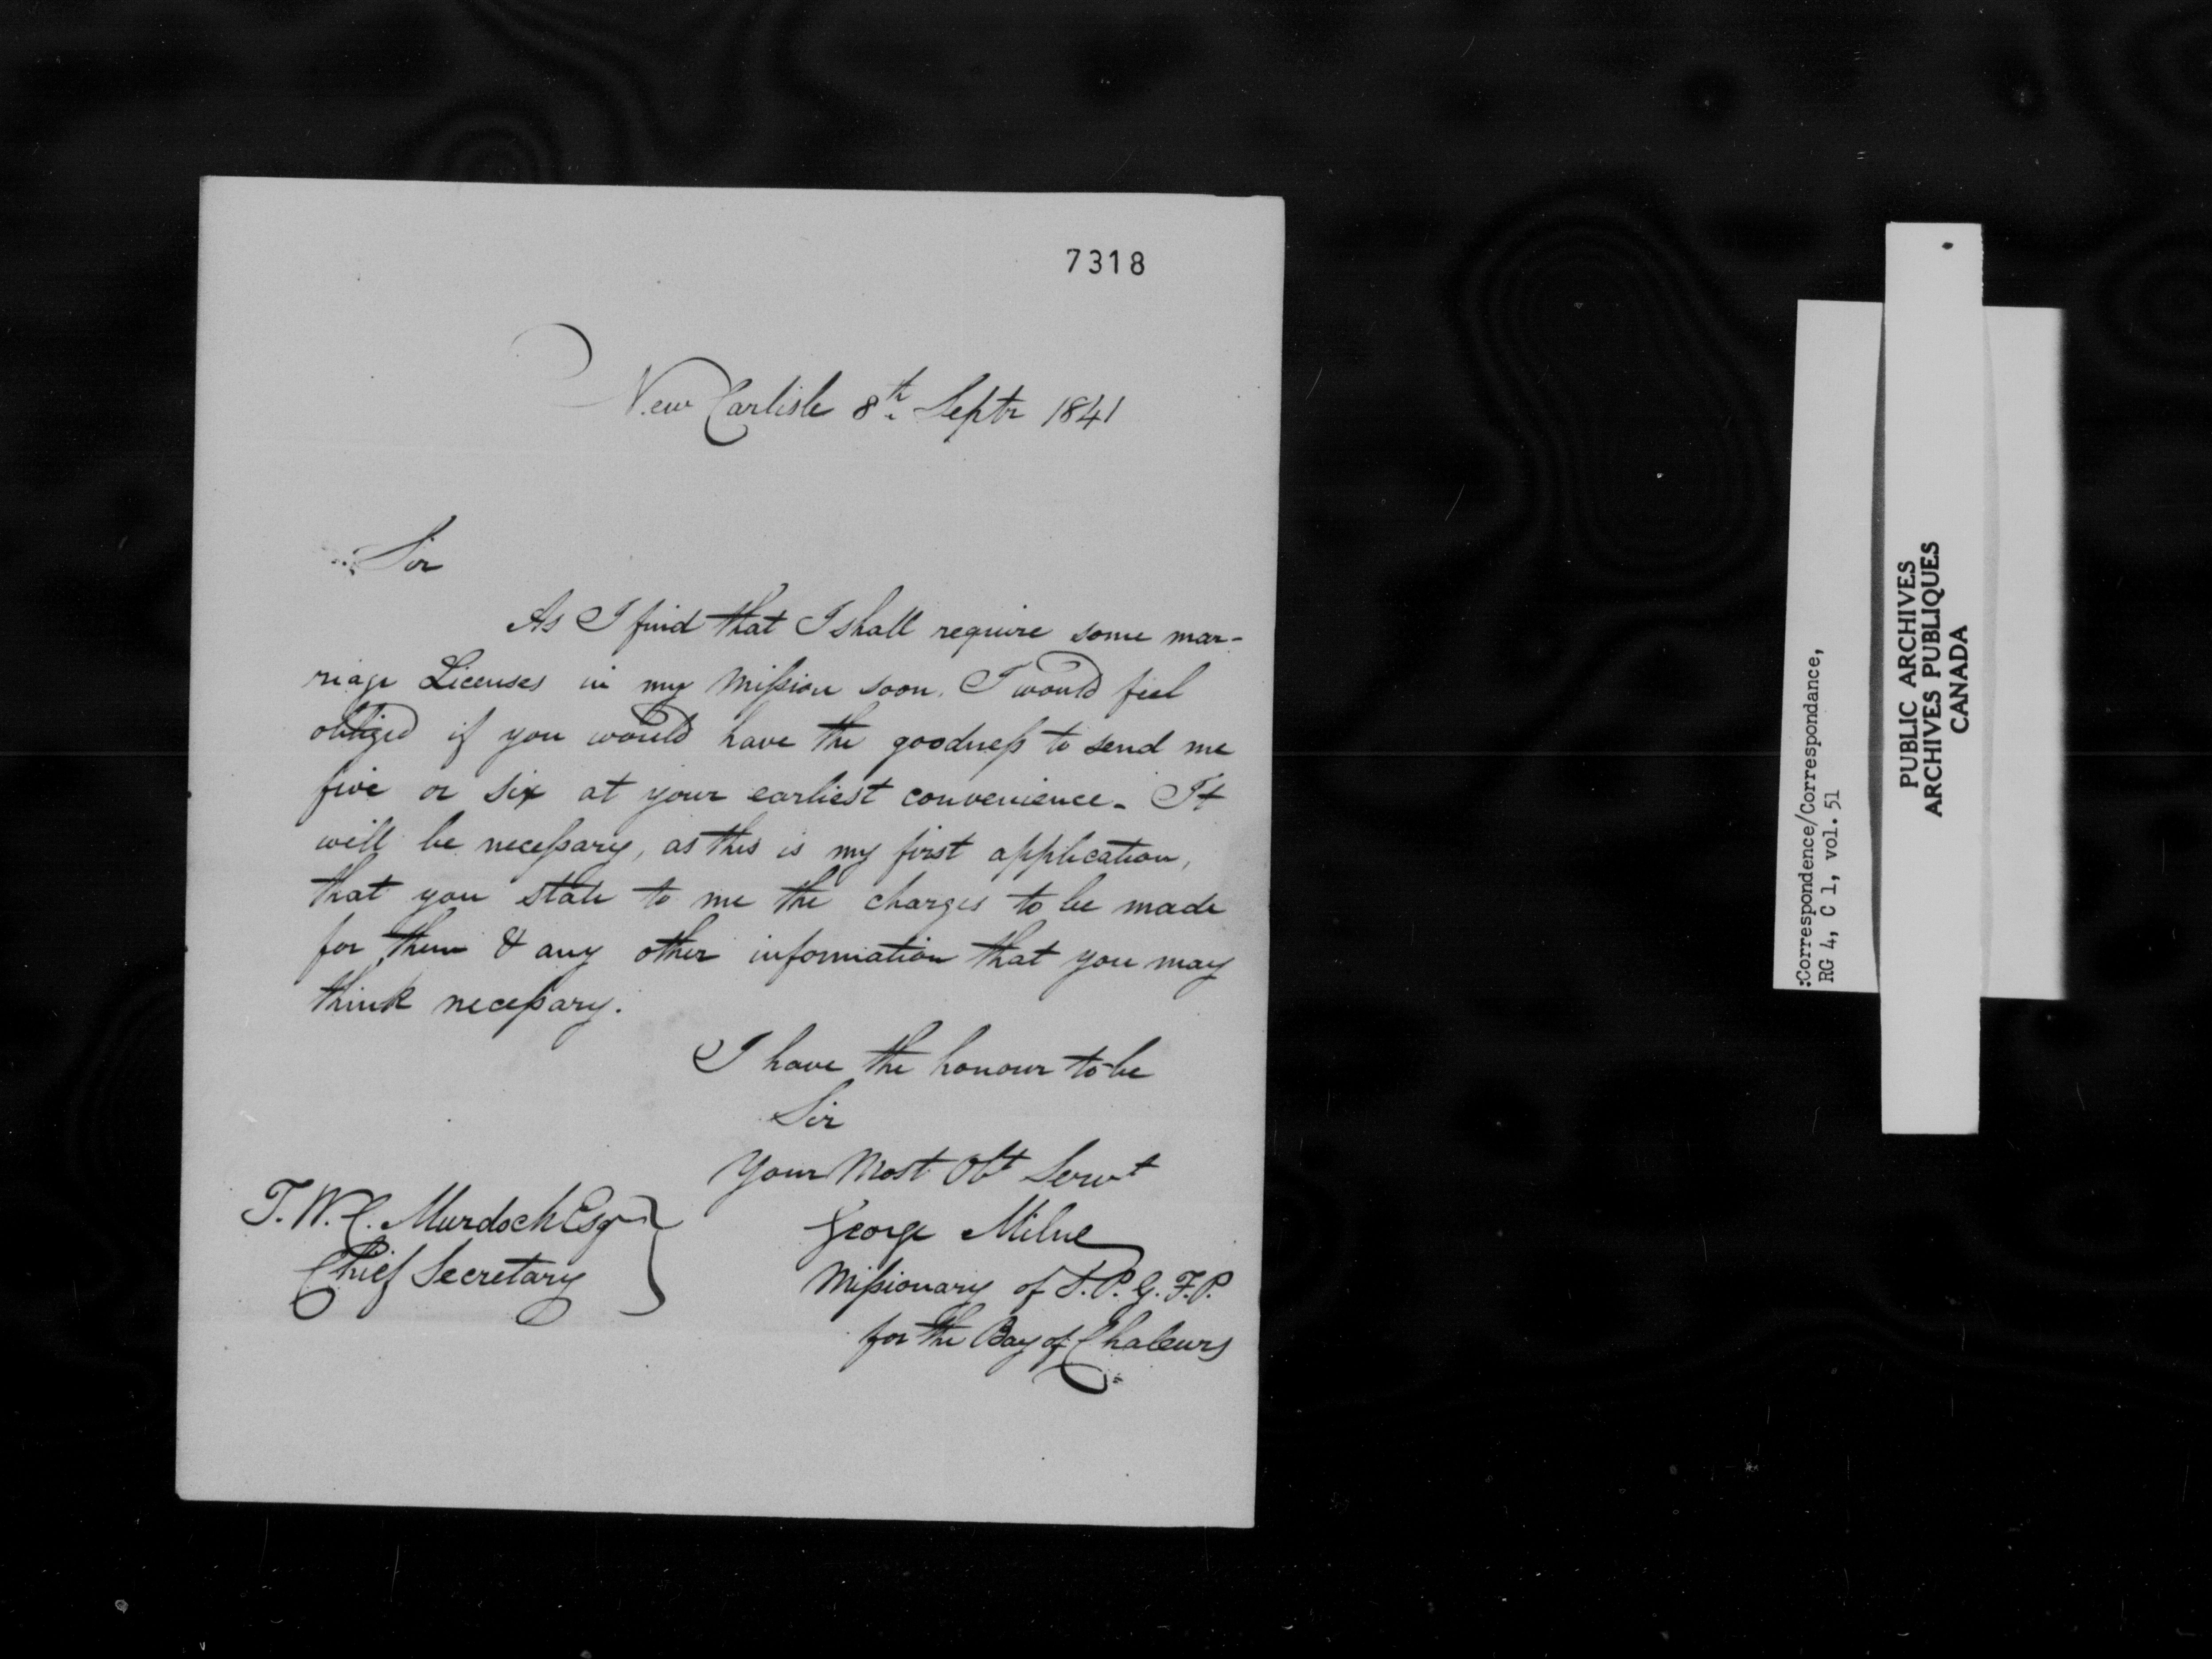 7318
New Carlisle 8th Septr 1841
Sir
As I find that I shall require some mar-
riage Licenses in my Mission soon. I would feel
obliged if you would have the goodness to send me
five or six at your earliest convenience. It
will be necessary, as this is my first application,
that you state to me the charges to be made
for them & any other information that you may
think necessary.
I have the honour to be
Sir
Your Most Obt Servt
George Milne
Missionary of S.P.G.F.P.
for the Bay of Chaleurs
T.W.C. Murdoch Esqr
Chief Secretary
:Correspondence/Correspondance,
RG 4, C 1, vol. 51
PUBLIC ARCHIVES
ARCHIVES PUBLIQUES
CANADA